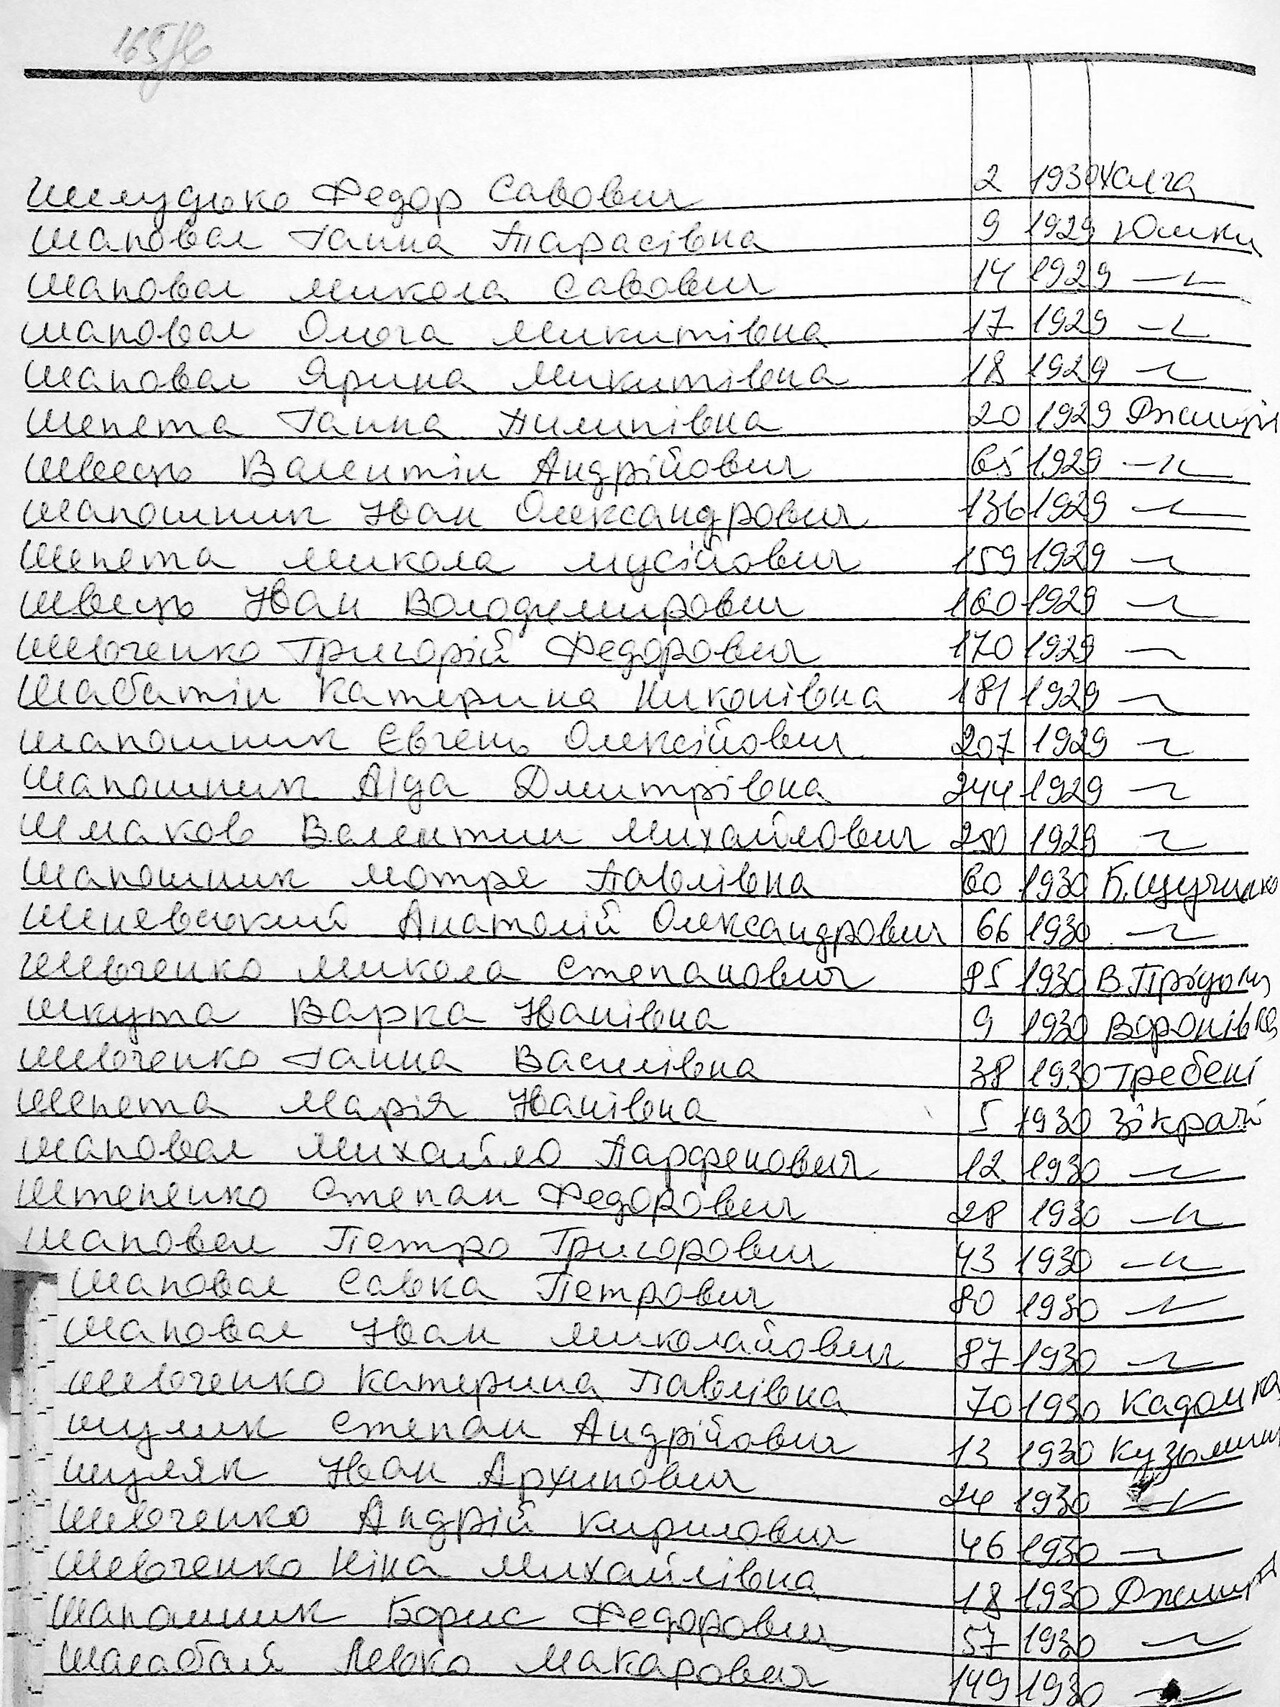 Шелудько Федор Савович 2 1930
Шаповал Ганна Тарасівна 9 1929 Юшки
Шаповал Микола Савович 14 1929 —〃—
Шаповал Ольга Микитівна 17 1929 —〃—
Шаповал Ярина Микитівна 18 1929 —〃—
Шепета Ганна Пилипівна 20 1929
Швець Валентін Андрійович 65 1929 —〃—
Шапошник Іван Олександрович 136 1929 —〃—
Шепета Микола Мусійович 159 1929 —〃—
Швець Іван Володимирович 160 1929 —〃—
Шевченко Григорій Федорович 170 1929 —〃—
Шабатін Катерина Никонівна 181 1929 —〃—
Шапошник Євгень Олексійович 207 1929 —〃—
Шапошник Аіда Дмитрівна 244 1929 —〃—
Шмаков Валентин Михайлович 250 1929 —〃—
Шапошник Мотря Павлівна 60 1930 Б.Щучинка
Шиневський Анатолій Олександрович 66 1930 —〃—
Шевченко Микола Степанович 85 1930
Шкута Варка Іванівна 9 1930 Воронівка
Шевченко Ганна Василівна 38 1930 Гребені
Шепета Марія Іванівна 5 1930 Зікрачі
Шаповал Михайло Парфенович 12 1930 —〃—
Штепенко Степан Федорович 28 1930 —〃—
Шаповал Петро Григорович 43 1930 —〃—
Шаповал Савка Петрович 80 1930 —〃—
Шаповал Іван Миколайович 87 1930 —〃—
Шевченко Катерина Павлівна 70 1930 Кадомка
Шулик Степан Андрійович 13 1930
Шуляк Іван Архипович 24 1930 —〃—
Шевченко Андрій Кирилович 46 1930 —〃—
Шевченко Ніна Михайлівна 18 1930
Шапошник Борис Федорович 57 1930 —〃—
Шалабая Левко Макарович 149 1930 —〃—